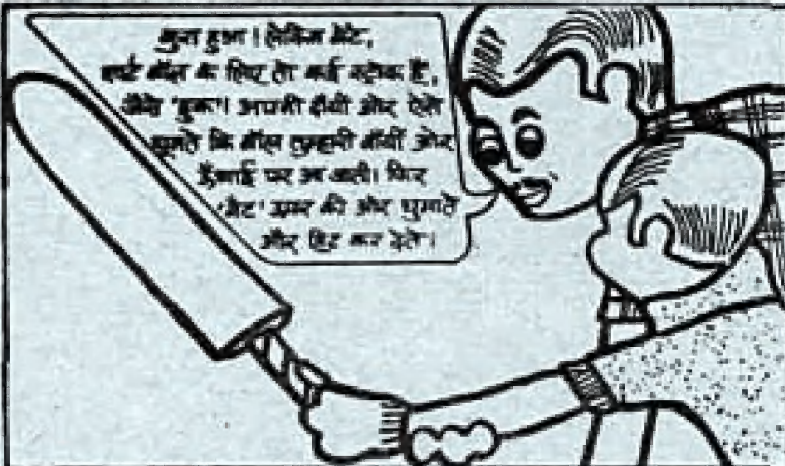 बुरा हुआ। लेकिन बेटे,
शार्ट बॉल के लिए तो कई स्ट्रोक हैं,
जैसे 'हुक'। अपनी दाँयी ओर ऐसे
घूमते कि बॉल तुम्हारी बाँयीं ओर
ऊँचाई पर आ जाती। फिर
'बेट' ऊपर की ओर घुमाते
और हिट कर देते।